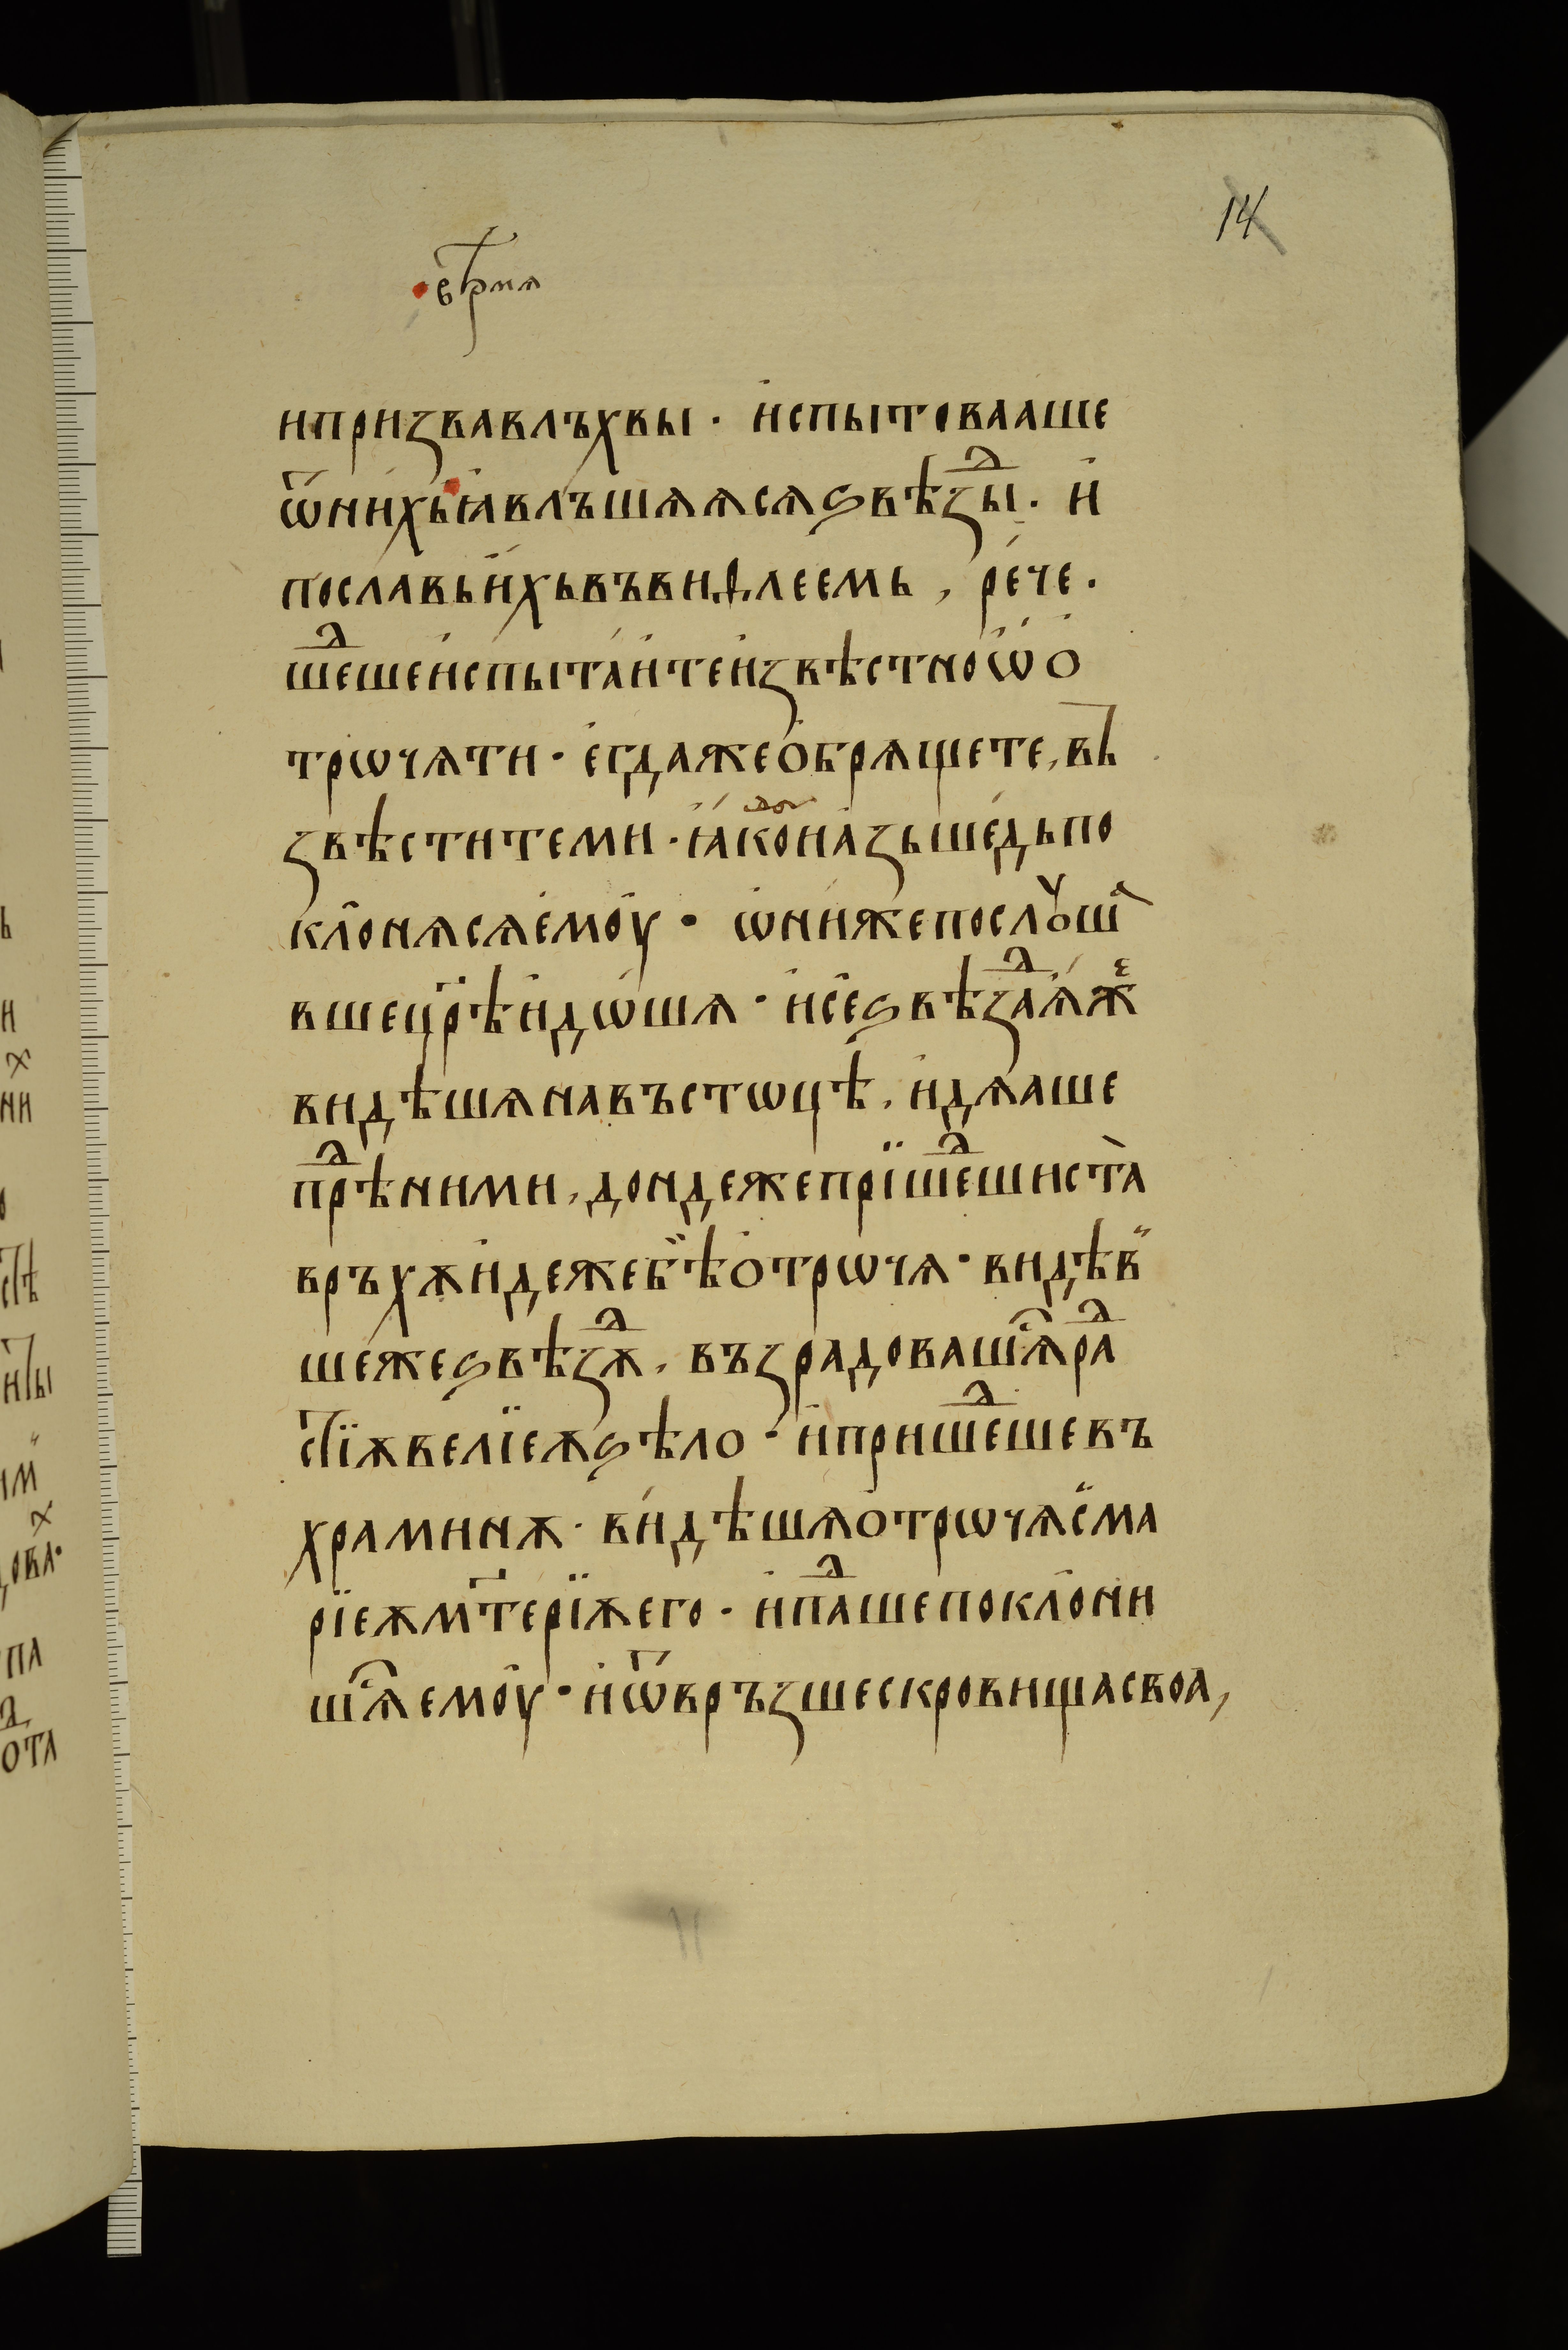 14
врⷨѧ
ипризвавлъхвы · и҆спытовааше
ѿнихьꙗ҆влъшѧѧсѧѕвѣзⷣы · и҆
пославьи҆хьвъвиѳлеемь , ре́че ·
шеⷣшеи҆спыта́итеи҆звѣстноѡ҆ѻ
трѡчѧти · е҆гдажеѻ҆брѧщете , въ
звѣститеми · ꙗ҆кѻиа҆зьше́дьпо
клонѧсѧе҆моу · ѡ҆нижепослꙋшаⷡ
вшецр҃ѣи҆дѡшѧ · и҆сеѕвѣзⷣаѧ҆жеⷤ
видѣшѧнавъстѡцѣ , и҆дѧаше
прѣⷣними , дондежепрїшеⷣшиста̀
връхѫи҆дежебѣѻ҆трѡчѧ · видѣв
шежеѕвѣзⷣѫ , възрадовашѧⷭ҇раⷣ
стїѫвелїеѫѕѣлѻ · и҆пришеⷣшевъ
храминѫ · ви́дѣшѧѻ҆трѡчѧсма
рїеѫмт҃ерїѫего · и҆паⷣшепоклони
шѧⷭ҇емоу · и҆ѿвръзшескровищасвоа ,
11